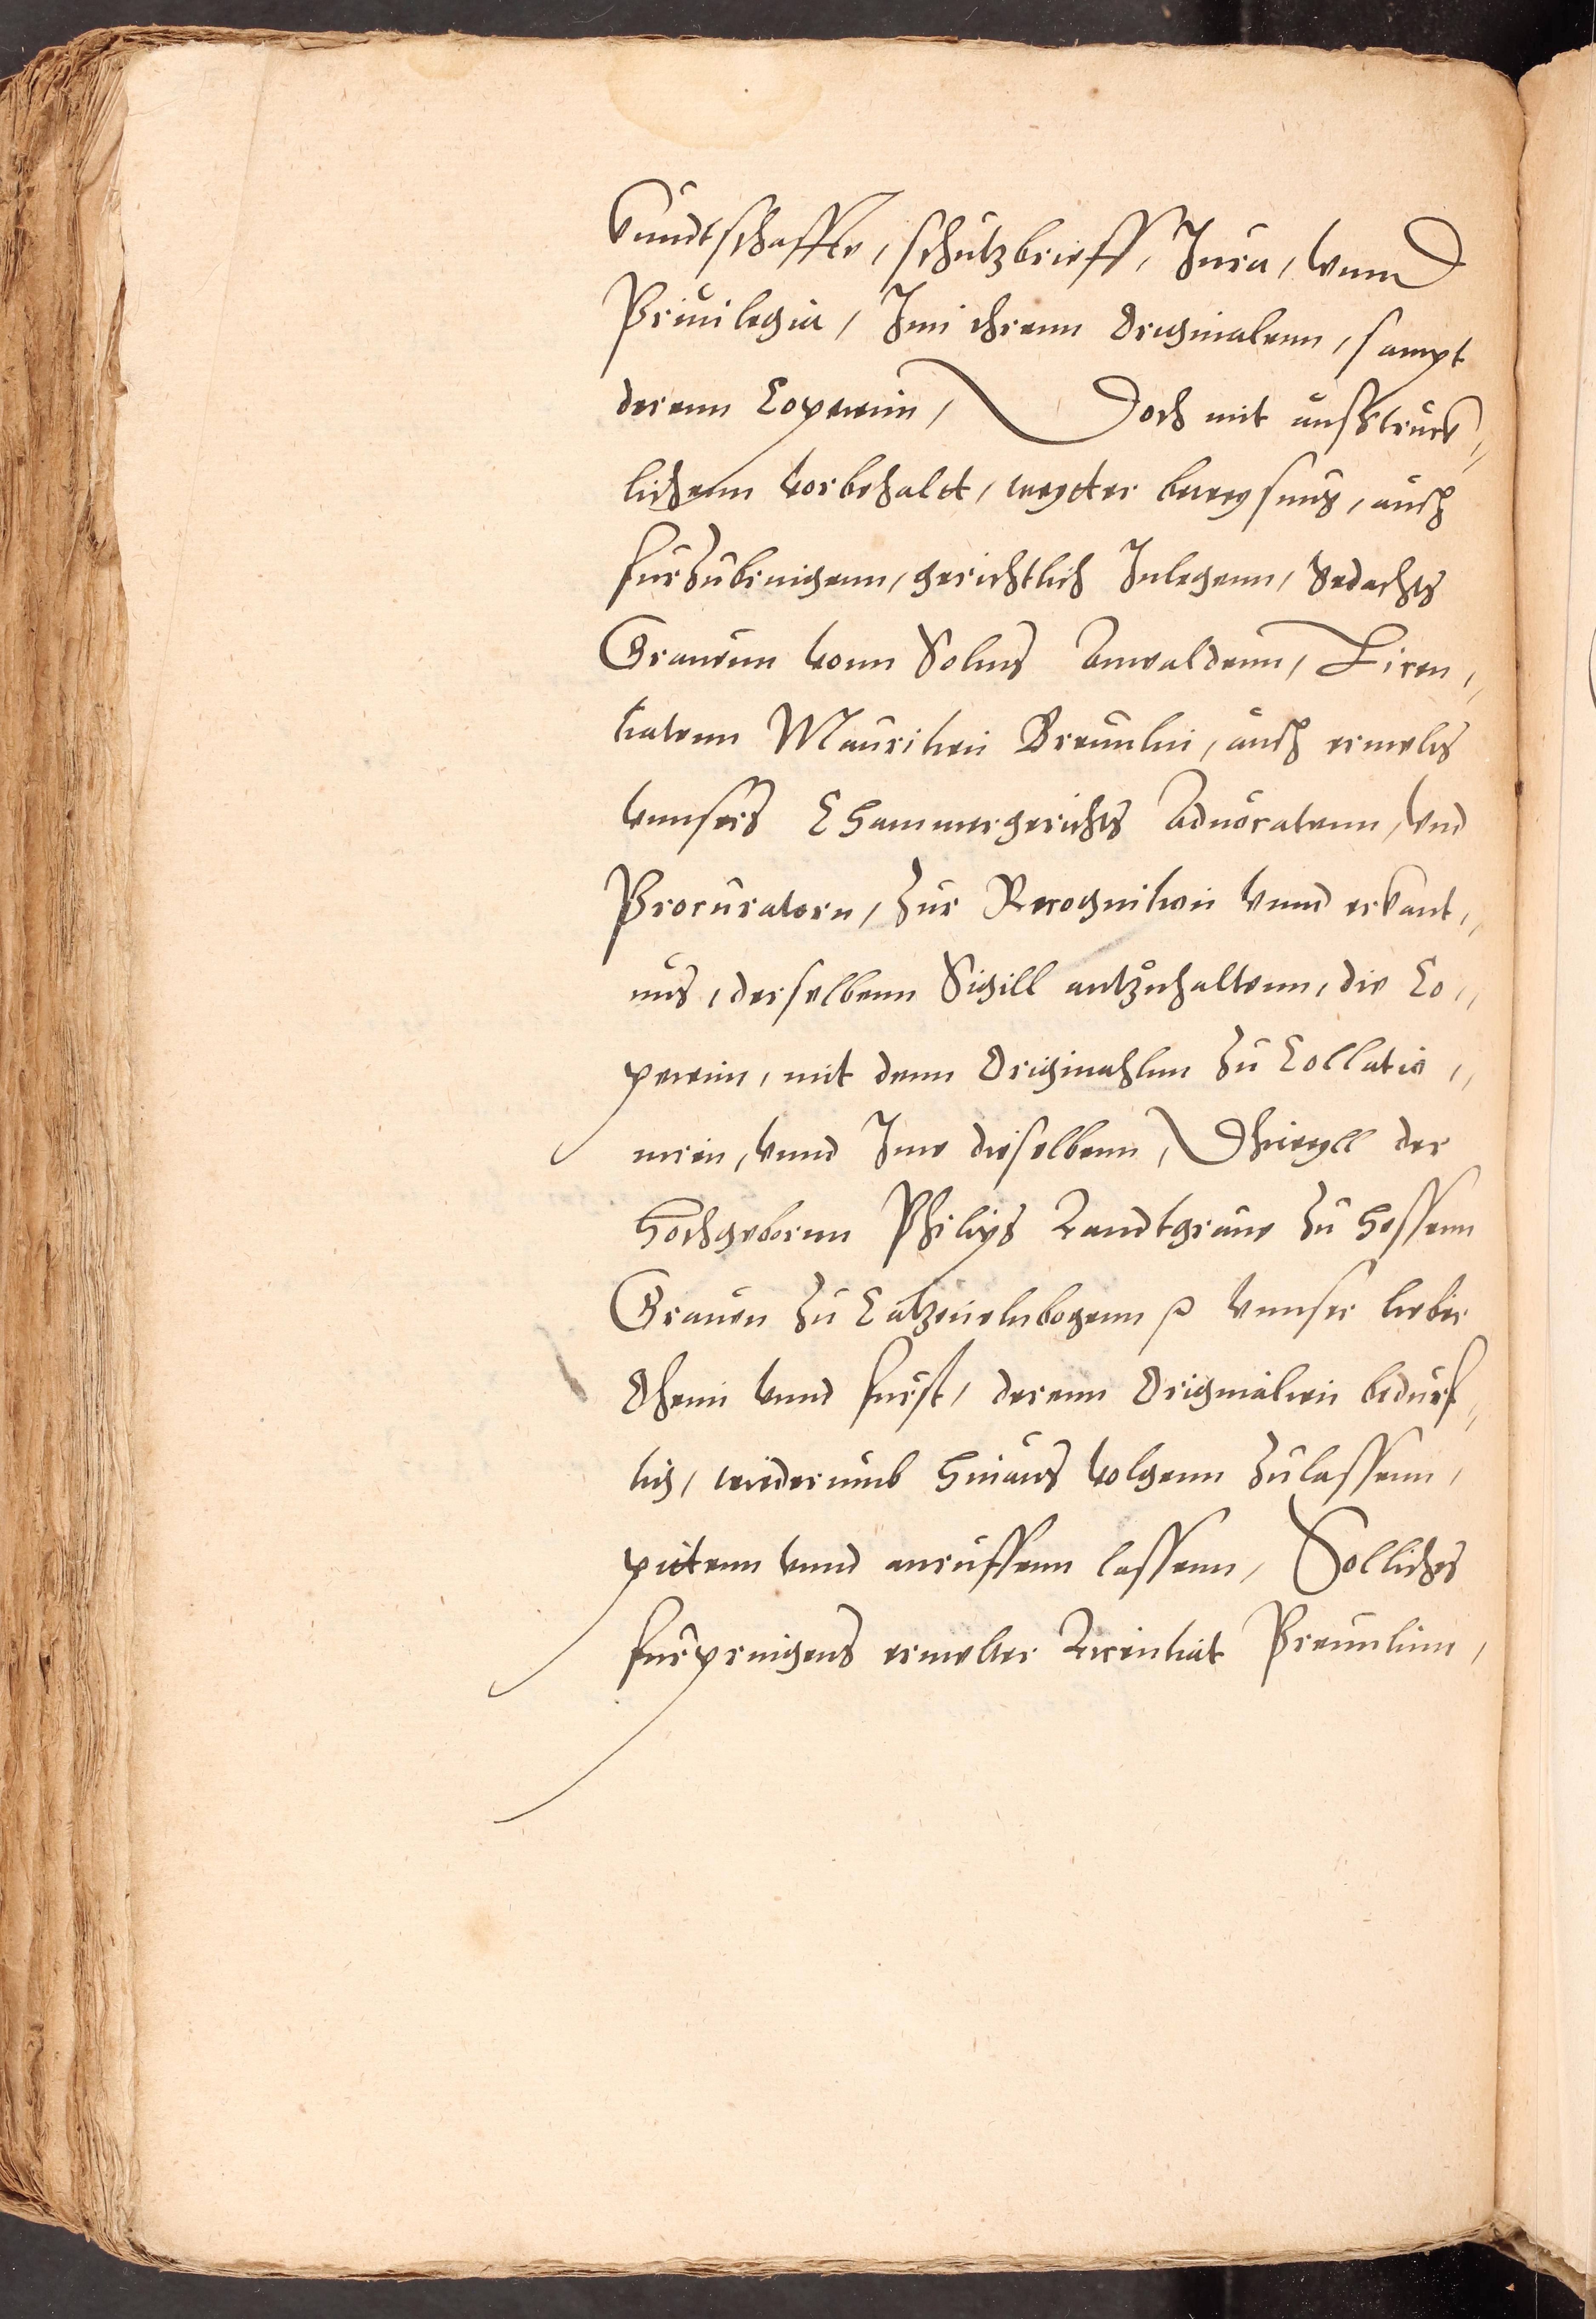 kundtschaffte, schutzbrieff, Jura, vnnd
Priuilegia, Inn ihrenn Originalenn, sampt
derenn Copeienn, Doch mit ausstruck„
lichenn vorbehaldt, weytter beweysung, auch
furzubringenn, gerichtlich Inlegenn, Gedachts
Grauenn vonn Solms Anwaldenn, Licen„
tiatenn Mauritien Breunlin, auch ermelts
vnnsers Chammergerichts Aduocatenn, vnd
Procuratorn, zur Recognition vnnd erkant„
nus, derselbenn Sigill antzuhaltenn, die Co„
peienn, mit denn Originahlnn zu Collatio„
nirn, vnnd Ime dieselbenn, Dhweyll der
Hochgebornn Philips Landtgraue zu Hessenn
Grauen zu Catzenelnbogenn ꝛc vnnser lieber
Ohem vnnd Furst, derenn Originalien bedurf„
tig, wiederumb hinaus volgenn zulassenn,
pittenn vnnd anruffenn lassenn, Sollichs
furpringens ermelter Licentiat Preunlinn,